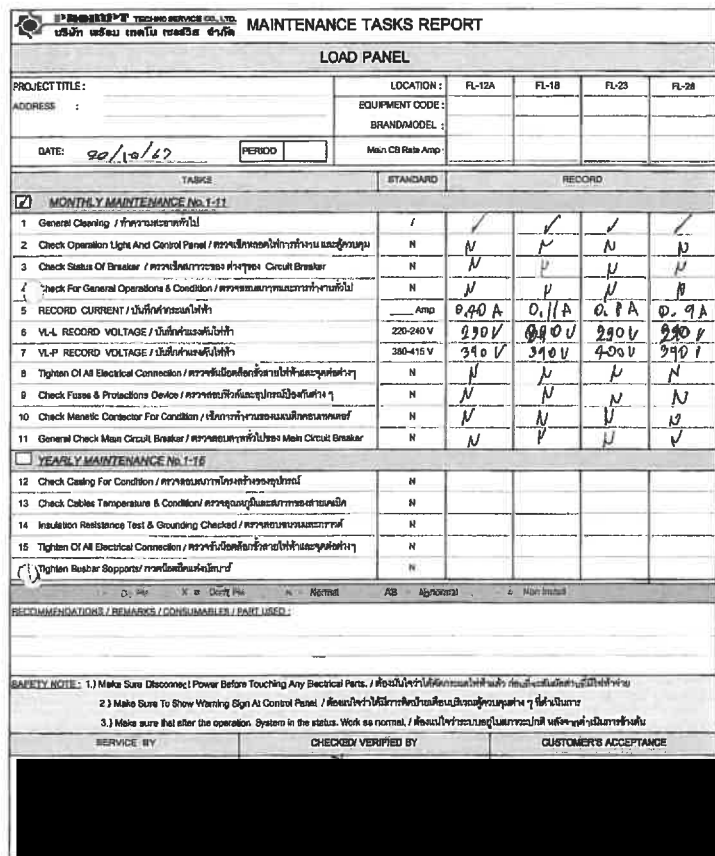 TECHNO SERVICE CO., LTD. MAINTENANCE TASKS REPORT
บริษัท พร้อม เทคโน เซอร์วิส จำกัด
LOAD PANEL
PROJECT TITLE : LOCATION : FL-12A FL-18 FL-23 FL-28
ADDRESS : EQUIPMENT CODE :
BRAND/MODEL :
DATE: 20/10/67 PERIOD Main CB Rate Amp :
TASKS STANDARD RECORD
☑ MONTHLY MAINTENANCE No.1-11
1 General Cleaning / ทำความสะอาดทั่วไป / ✓ ✓ ✓ ✓
2 Check Operation Light And Control Panel / ตรวจเช็คหลอดไฟการทำงาน และตู้ควบคุม N N N N N
3 Check Status Of Breaker / ตรวจเช็คสภาวะของ ต่างๆของ Circuit Breaker N N N N N
Check For General Operations & Condition / ตรวจสอบสภาพและการทำงานทั่วไป N N N N N
5 RECORD CURRENT / บันทึกค่ากระแสไฟฟ้า ___ Amp 0.40 A 0.11 A 0.8 A 0.9A
6 VL-L RECORD VOLTAGE / บันทึกค่าแรงดันไฟฟ้า 220-240 V 230 V 230 V 230 V 230 V
7 VL-P RECORD VOLTAGE / บันทึกค่าแรงดันไฟฟ้า 380-415 V 390 V 390 V 400 V 390 V
8 Tighten Of All Electrical Connection / ตรวจขันน็อตล็อกขั้วสายไฟฟ้าและจุดต่อต่างๆ N N N N N
9 Check Fuses & Protections Device / ตรวจสอบฟิวส์และอุปกรณ์ป้องกันต่าง ๆ N N N N N
10 Check Manetic Contector For Condition / เช็คการทำงานของแมกเนติกคอนแทคเตอร์ N N N N N
11 General Check Main Circuit Breaker / ตรวจสอบสภาพทั่วไปของ Main Circuit Breaker N N N N N
☐ YEARLY MAINTENANCE No.1-16
12 Check Casing For Condition / ตรวจสอบสภาพโครงสร้างของอุปกรณ์ N
13 Check Cables Temperature & Condition/ ตรวจอุณหภูมิและสภาพของสายเคเบิล N
14 Insulation Resistance Test & Grounding Checked / ตรวจสอบฉนวนและกราวด์ N
15 Tighten Of All Electrical Connection / ตรวจขันน็อตล็อกขั้วสายไฟฟ้าและจุดต่อต่างๆ N
Tighten Busbar Sopports/ กวดน็อตยึดแท่งบัสบาร์ N
N = Normal AB = Abnormal
RECOMMENDATIONS / REMARKS / CONSUMABLES / PART USED :
SAFETY NOTE : 1.) Make Sure Disconnect Power Before Touching Any Electrical Parts. / ต้องมั่นใจว่าได้ตัดกระแสไฟฟ้าแล้ว ก่อนที่จะสัมผัสส่วนที่มีไฟฟ้าจ่าย
2.) Make Sure To Show Warning Sign At Control Panel. / ต้องแน่ใจว่าได้มีการติดป้ายเตือนบริเวณตู้ควบคุมต่าง ๆ ที่ดำเนินการ
3.) Make sure that after the operation System in the status. Work as normal. / ต้องแน่ใจว่าระบบอยู่ในสภาวะปกติ หลังจากดำเนินการข้างต้น
SERVICE BY CHECKED/ VERIFIED BY CUSTOMER'S ACCEPTANCE